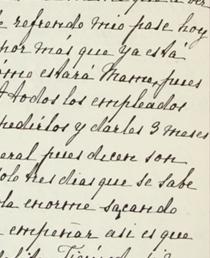 a ver
refrendo mio pase hoy
por más que ya está
ómo estará Mamá, pues
todos los empleados
pedirlos y darles 3 meses
eral, pues dicen son
olo tres dias que se sabe
la enorme sacando
empeñar asi es que